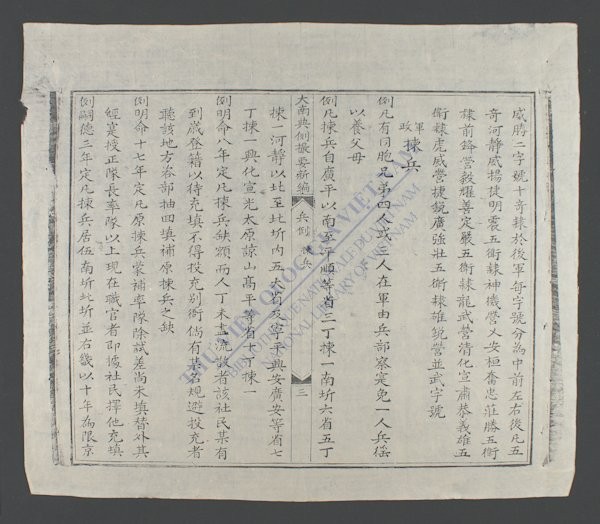 威勝二字號十奇隸於後軍每字號分為中前左右後凡五
奇河静威揚徒明震五衛隸神機營乂安桓奮忠莊勝五衛
隸前鋒營毅耀善定嚴五衛隸龍武營清化宣肅恭義雄五
衛隸虎威營捷銳廣強壯五衛隸雄銳營並武字號
軍政
揀兵
例凡有同胞兄弟四人或三人在軍由兵部察寔免一人兵徭
以養父母
例凡揀兵自廣平以南至平順等省三丁揀一南圻六省五丁
大南典例撮要新編
兵例
揀兵
三
揀一河静以北至北圻内五大省及寧平興安廣安等省七
丁揀一興化宣光太原諒山高平等省十丁揀一
例明命八年定凡揀兵缺額而人丁未盡流散者該社民某有
到歲登籍以待充填不得投充別衛倘有某名規避投充者
聽該地方咨部抽回填補原揀兵之缺
例明命十七年定凡原揀兵蒙補率隊除試差尚未填替外其
經蒙授正隊長率隊以上現在職官者即據社民擇他充填
例嗣德三年定凡揀兵居伍南圻北圻並右畿以十年為限京
THƯ VIỆN QUỐC GIA VIỆT NAM
BIBLIOTHÈQUE NATIONALE DU VIETNAM
NATIONAL LIBRARY OF VIETNAM